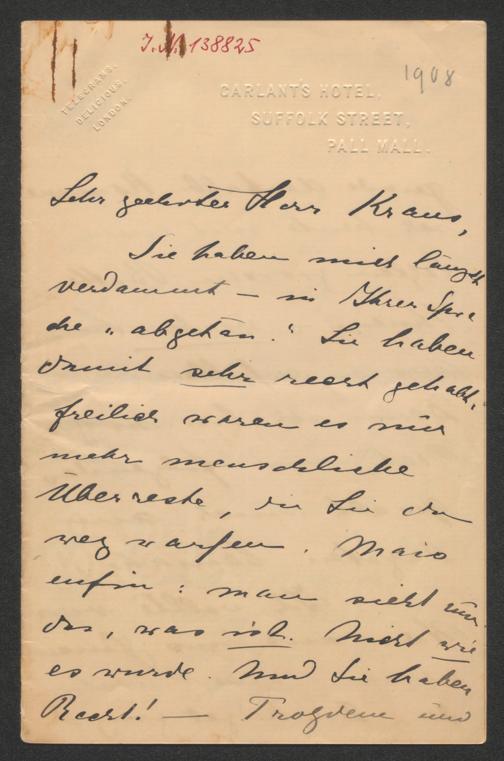 J.N. 138825
1908
TELEGRAMS.
DELICIOUS.
LONDON.
GARLANT'S HOTEL,
SUFFOLK STREET,
PALL MALL.
Sehr geehrter Herr Kraus,
Sie haben mich längst
verdammt – in Ihrer Spra
che „abgetan." Sie haben
damit sehr recht gehabt,
freilich waren es nur
mehr menschliche
Überreste, die Sie da
weg warfen. Mais
enfin: man sieht nur
das, was ist. Nicht wie
es wurde. Und Sie haben
Recht! — Trotzdem und